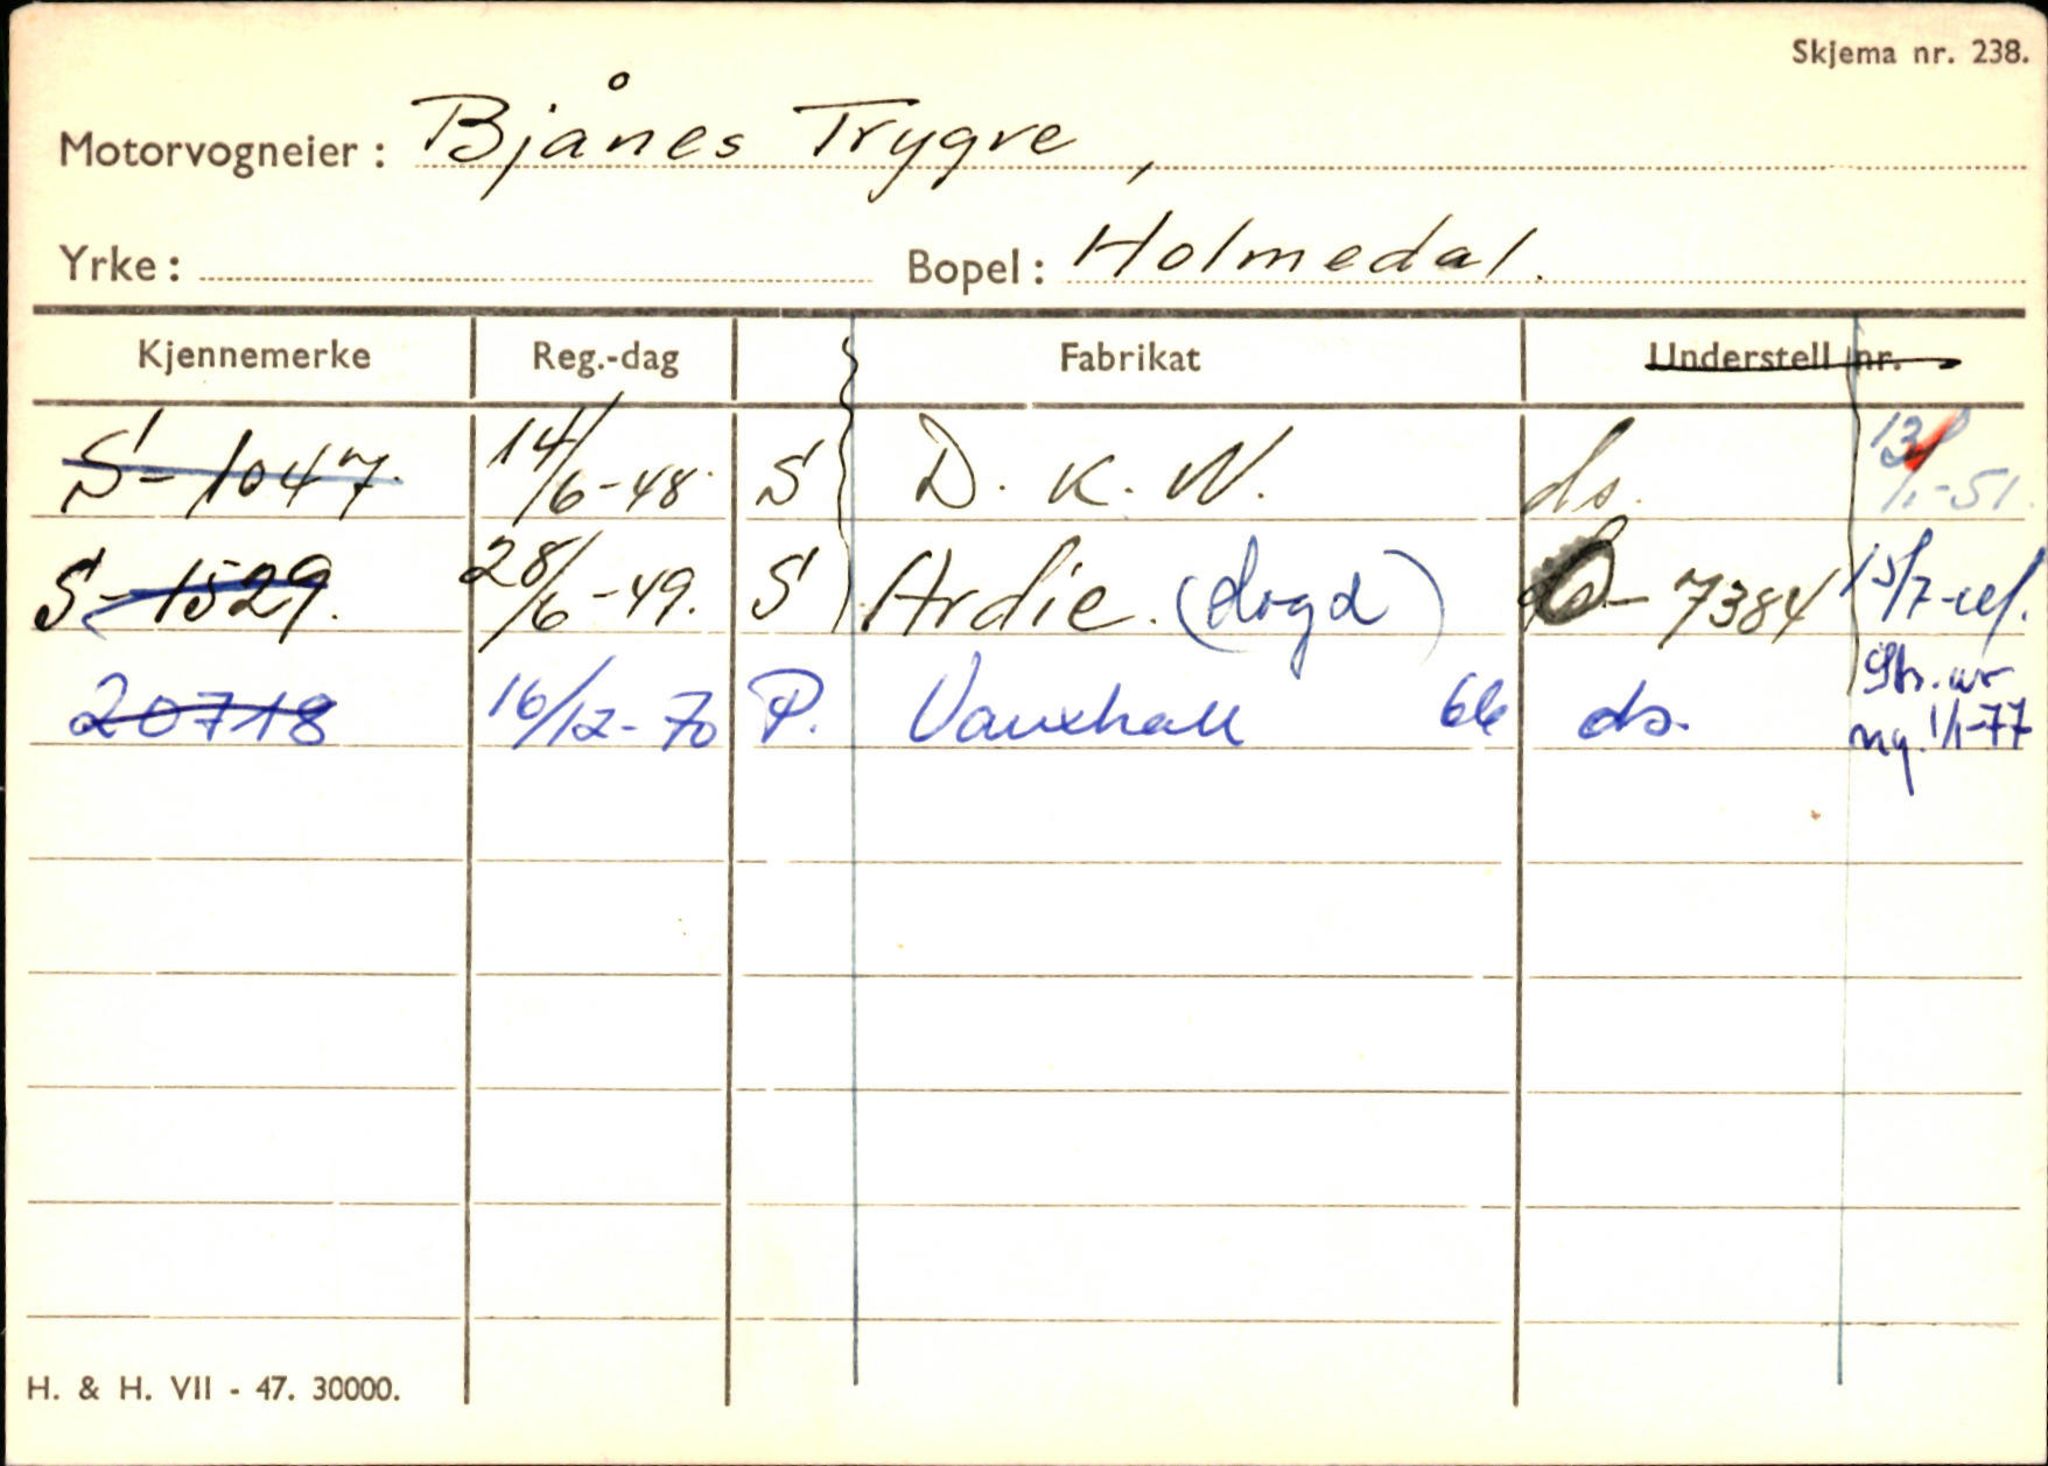 Skjema nr. 238.
Motorvogneier: Bjånes Trygve,
Yrke: Bopel: Holmedal.
Kjennemerke Reg.-dag Fabrikat Understell nr.
S-1047. 14/6-48. S D.K.W. ds. 13/1-51.
S-1529. 28/6-49. S Ardie. (dogd) ds.-7384 15/7-
20718 16/12-70 P. Vauxhall 66 ds. 1/1-77
H. & H. VII - 47. 30000.